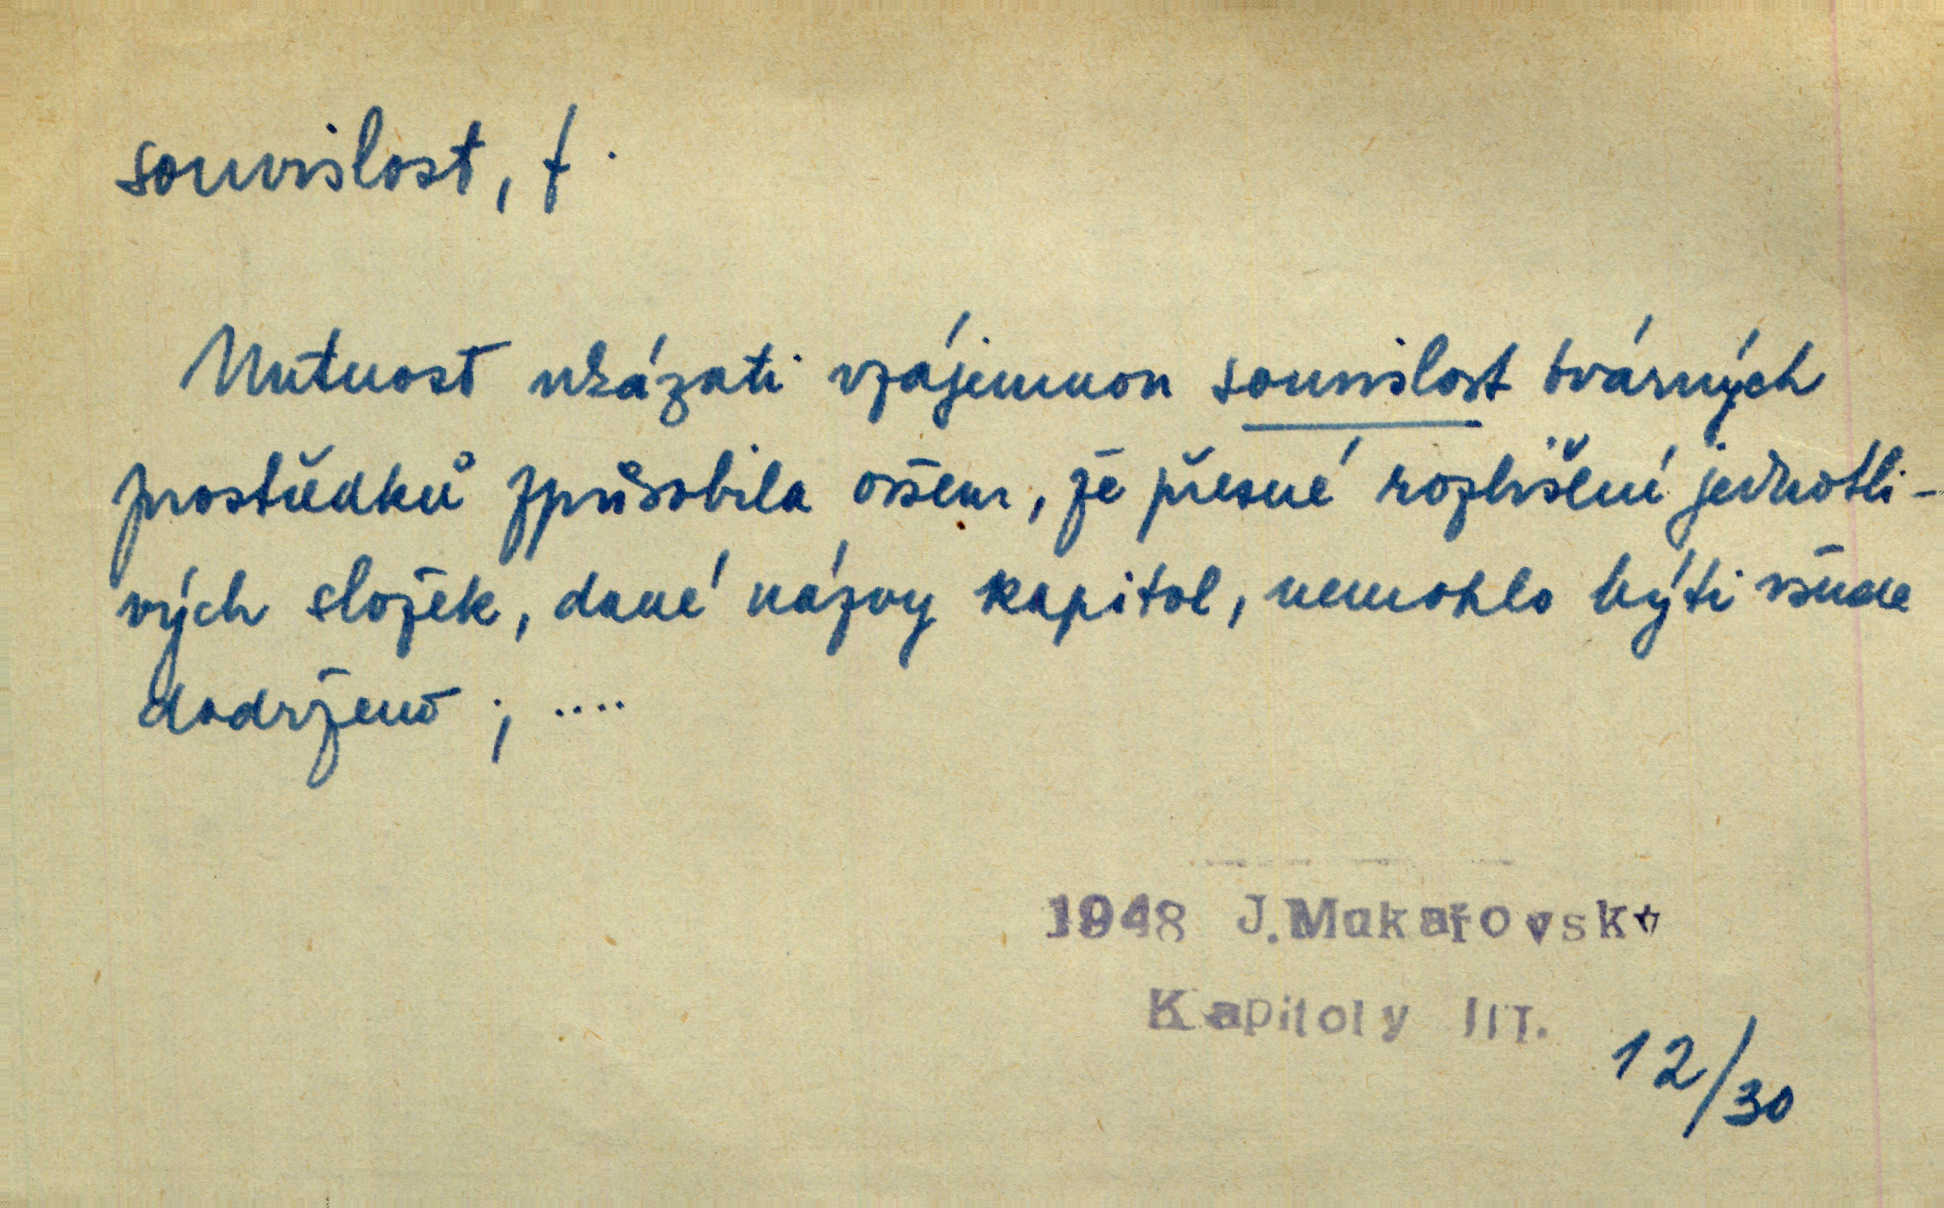 souvislost, f.
Nutnost ukázati vzájemnou souvislost tvárných
prostředků způsobila ovšem, že přesné rozlišení jednotli-
vých složek, dané názvy kapitol, nemohlo býti všude
dodrženo; ....
1948 J.Mukařovský
Kapitoly III.
12/30